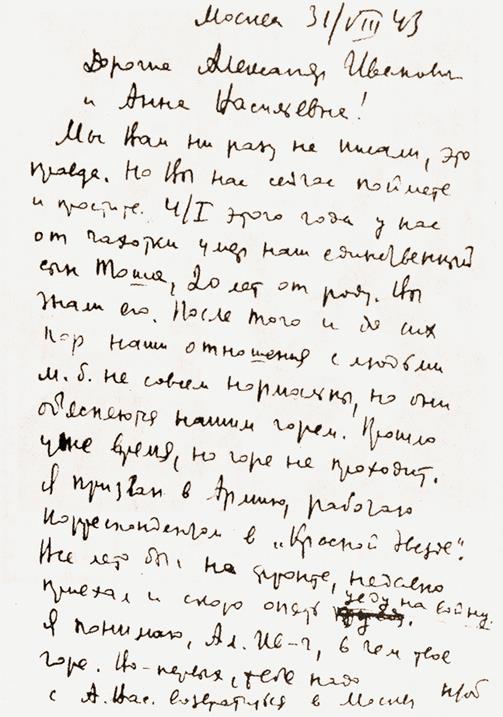 Москва 31/VIII 43
Дорогие Александр Иванович
и Анна Васильевна!
Мы Вам ни разу не писали, это
правда. Но Вы нас сейчас поймете
и простите. 4/I этого года у нас
от чахотки умер наш единственный
сын Тоша, 20 лет от роду. Вы
знали его. После того и до сих
пор наши отношения с людьми
м.б. не совсем нормальны, но они
объясняются нашим горем. Прошло
уже время, но горе не проходит.
Я призван в Армию, работаю
корреспондентом в „Красной Звезде".
Все лето был на фронте, недавно
приехал и скоро опять уеду на войну.
Я понимаю, Ал. Ив-ч, в чем твое
горе. Во-первых, тебе надо
с А. Вас. возвратиться в Москву